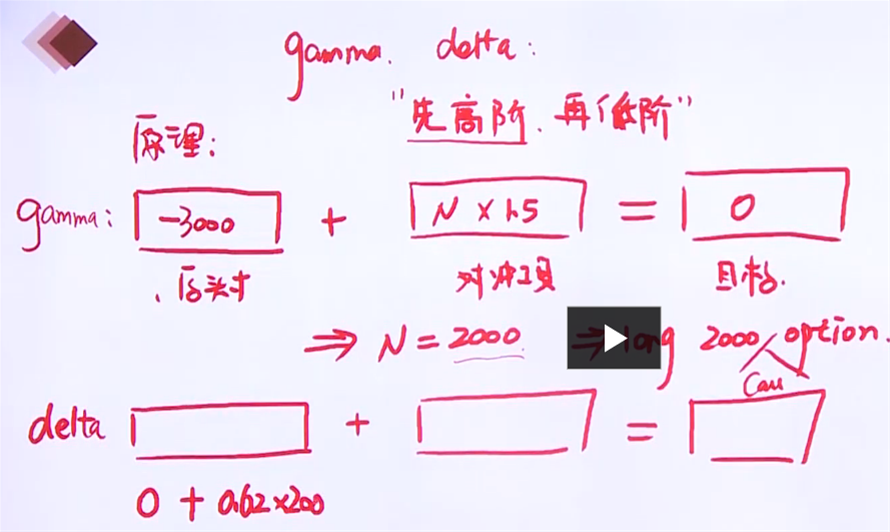 gamma. delta:
"先高阶. 再低阶"
原理:
gamma: -3000 + N × 1.5 = 0
原头寸 对冲工具 目标.
⇒ N = 2000 ⇒ long 2000 option.
Call
delta + =
0 + 0.62×200